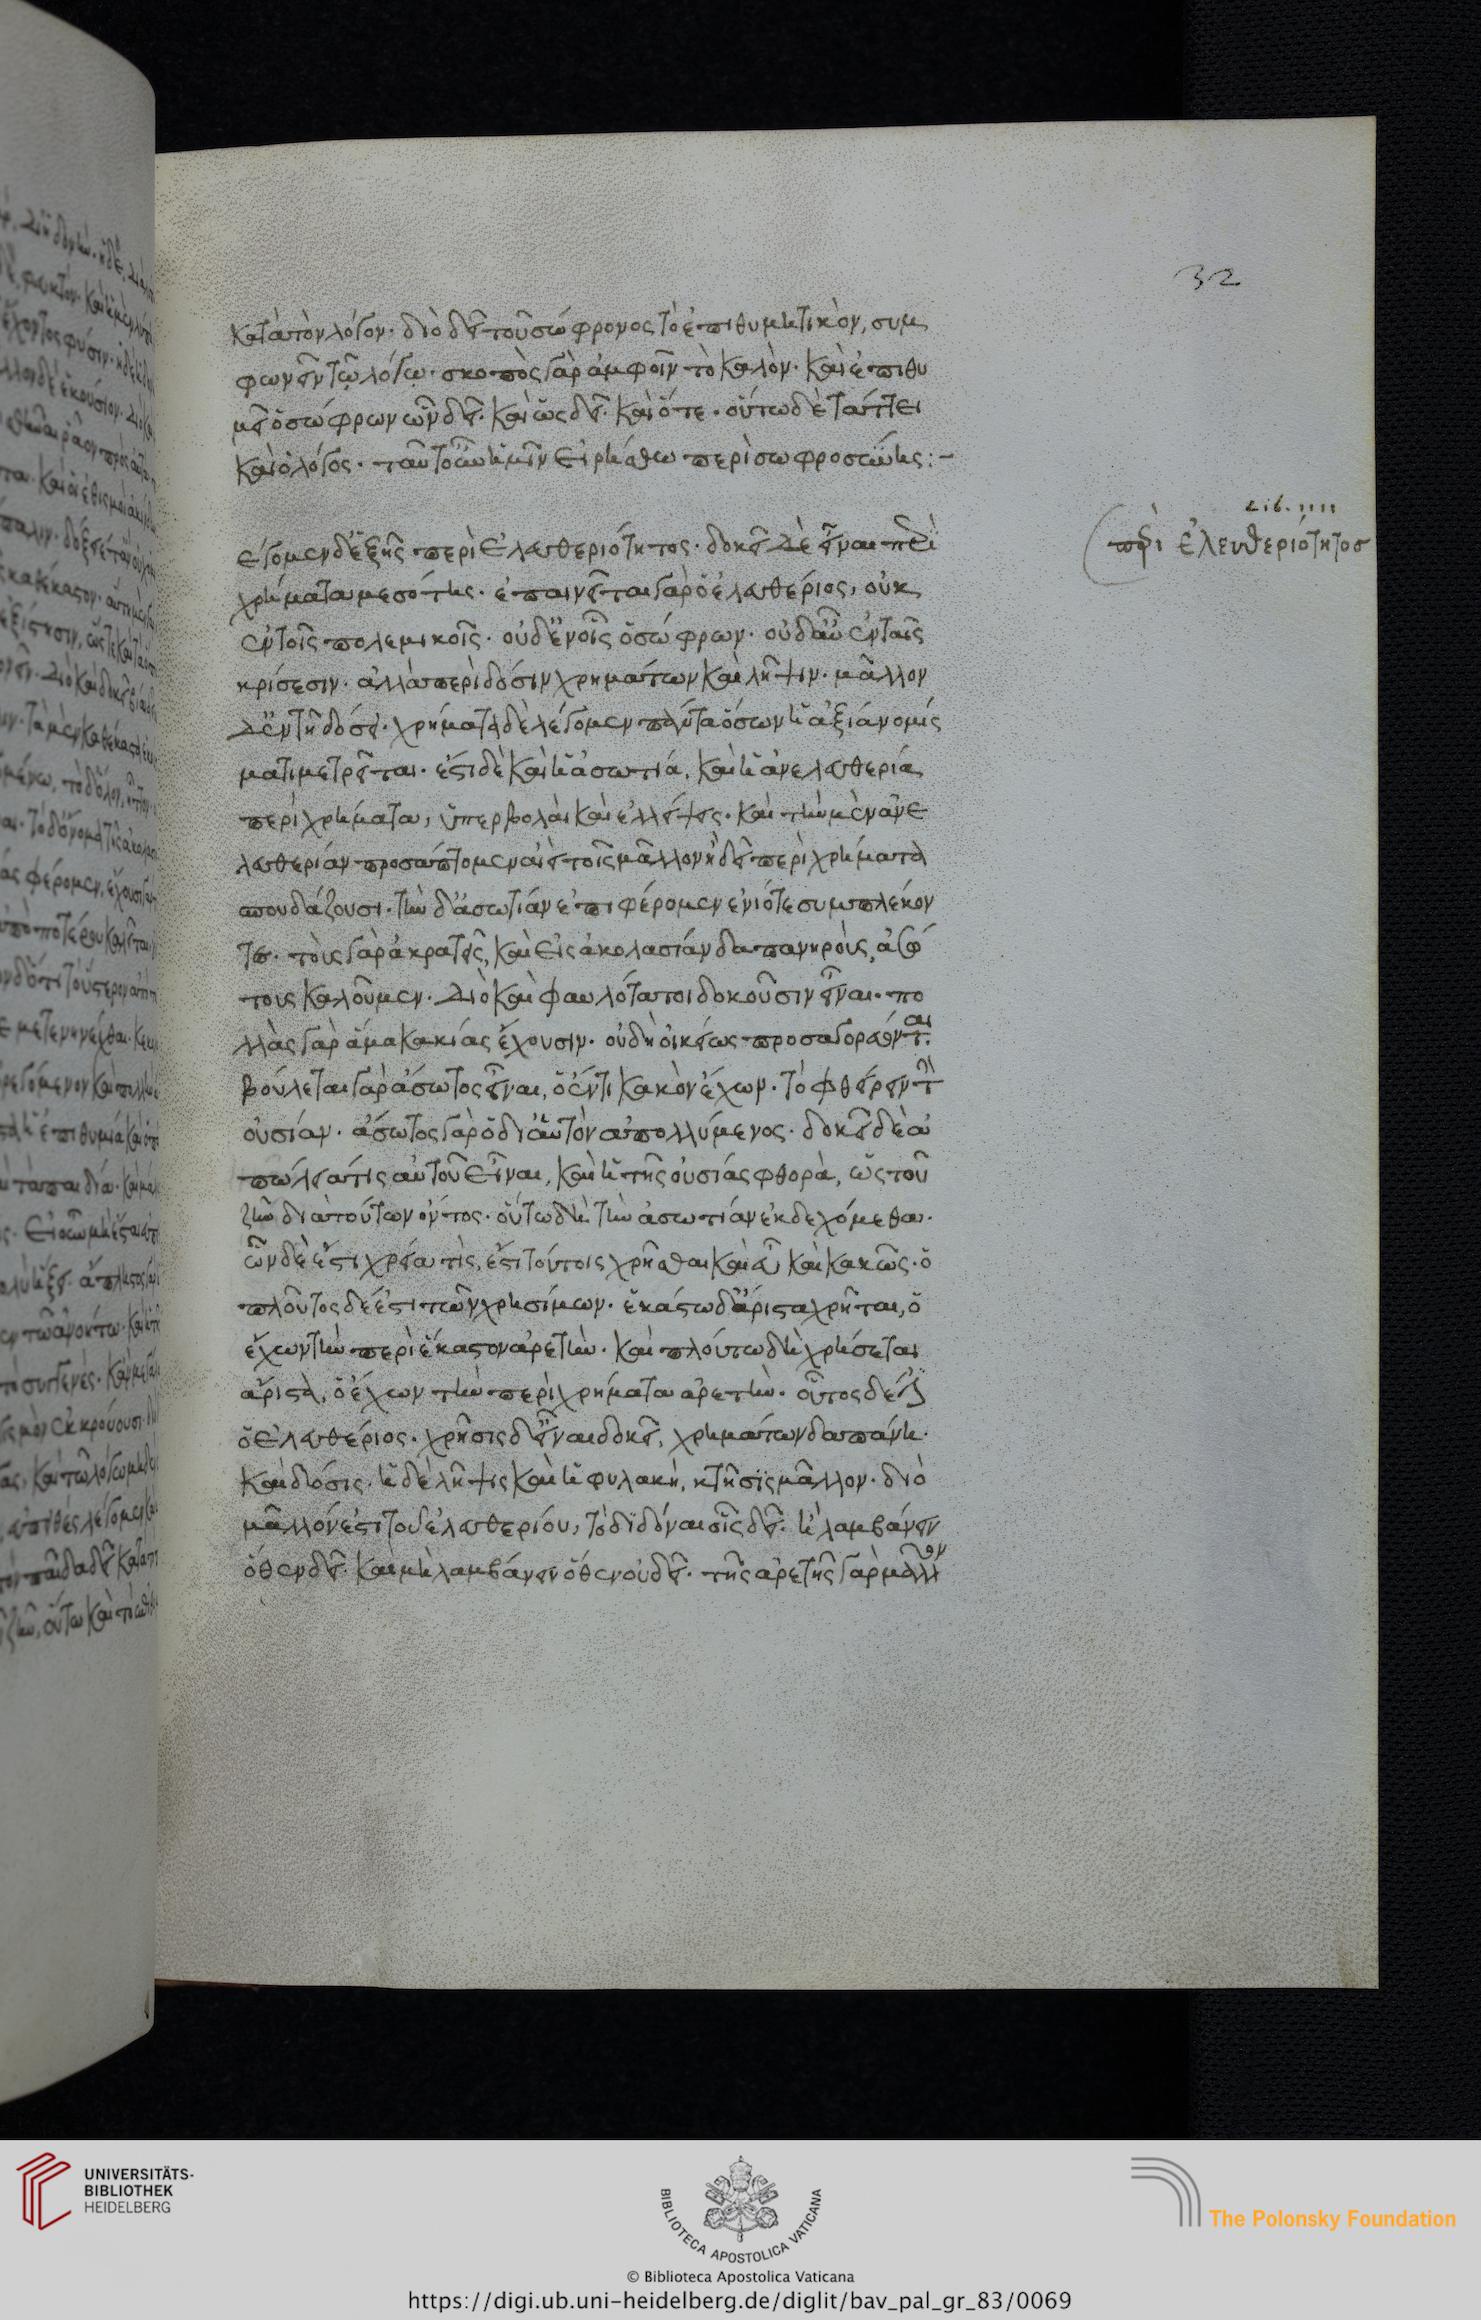 32
κατὰ τὸν λόγον· διὸ δεῖ τοῦ σώφρονος τὸ ἐπιθυμητικὸν, συμ
φωνεῖν τῷ λόγῳ· σκοπὸς γὰρ ἀμφοῖν τὸ καλὸν· καὶ ἐπιθυ
μεῖ ὁ σώφρων ὧν δεῖ· καὶ ὡς δεῖ· καὶ ὅτε· οὕτω δὲ τάττει
καὶ ὁ λόγος· ταῦτ' οὖν ἡμῖν εἰρήσθω περὶ σωφροσύνης:-
Lib. IIII
περὶ ἐλευθεριότητοσ
λέγομεν δ' ἑξῆς περὶ ἐλευθεριότητος· δοκεῖ δὲ εἶναι περὶ
χρήματα μεσότης· ἐπαινεῖται γὰρ ὁ ἐλευθέριος, οὐκ
ἐν τοῖς πολεμικοῖς· οὐδ' ἐν οἷς ὁ σώφρων· οὐδ' αὖ ἐν ταῖς
κρίσεσιν· ἀλλὰ περὶ δόσιν χρημάτων καὶ λῆψιν· μᾶλλον
δ' ἐν τῇ δόσει· χρήματα δὲ λέγομεν πάντα ὅσων ἡ ἀξία νομίς
ματι μετρεῖται· ἔστι δὲ καὶ ἡ ἀσωτία, καὶ ἡ ἀνελευθερία
περὶ χρήματα, ὑπερβολαὶ καὶ ἐλλείψεις· καὶ τὴν μὲν ἀνε
λευθερίαν προσάπτομεν αἰεὶ τοῖς μᾶλλον ἢ δεῖ περὶ χρήματα
σπουδάζουσι· τὴν δ' ἀσωτίαν ἐπιφέρομεν ἐνιότε συμπλέκον
τες· τοὺς γὰρ ἀκρατεῖς, καὶ εἰς ἀκολασίαν δαπανηροὺς, ἀσώ
τους καλοῦμεν· διὸ καὶ φαυλότατοι δοκοῦσιν εἶναι· πο
λλὰς γὰρ ἅμα κακίας ἔχουσιν· οὐ δὴ οἰκείως προσαγορεύονται·
βούλεται γὰρ ἄσωτος εἶναι, ὁ ἕν τι κακὸν ἔχων· τὸ φθείρειν τὴν
οὐσίαν· ἄσωτος γὰρ ὁ δι' αὑτὸν ἀπολλύμενος· δοκεῖ δὲ ἀ
πώλειά τις αὐτοῦ εἶναι, καὶ ἡ τῆς οὐσίας φθορὰ, ὡς τοῦ
ζῆν διὰ τούτων ὄντος· οὕτω δὴ τὴν ἀσωτίαν ἐκδεχόμεθα·
ὧν δὲ ἐστι χρεία τὶς, ἔστι τούτοις χρῆσθαι καὶ εὖ καὶ κακῶς· ὁ
πλοῦτος δέ ἐστι τῶν χρησίμων· ἑκάστω δ' ἄριστα χρῆται, ὁ
ἔχων τὴν περὶ ἕκαστον ἀρετὴν· καὶ πλούτω δὴ χρήσεται
ἄριστα, ὁ ἔχων τὴν περὶ χρήματα ἀρετὴν· οὗτος δέ ἐστιν
ὁ ἐλευθέριος· χρῆσις δ' εἶναι δοκεῖ, χρημάτων δαπάνη·
καὶ δόσις· ἡ δὲ λῆψις καὶ ἡ φυλακή, κτῆσις μᾶλλον· διὸ
μᾶλλόν ἐστι τοῦ ἐλευθερίου, τὸ διδόναι οἷς δεῖ· ἢ λαμβάνειν
ὅθεν δεῖ· καὶ μὴ λαμβάνειν ὅθεν οὐ δεῖ· τῆς ἀρετῆς γὰρ μᾶλλον
UNIVERSITÄTS-
BIBLIOTHEK
HEIDELBERG
BIBLIOTECA APOSTOLICA VATICANA
The Polonsky Foundation
© Biblioteca Apostolica Vaticana
https://digi.ub.uni-heidelberg.de/diglit/bav_pal_gr_83/0069